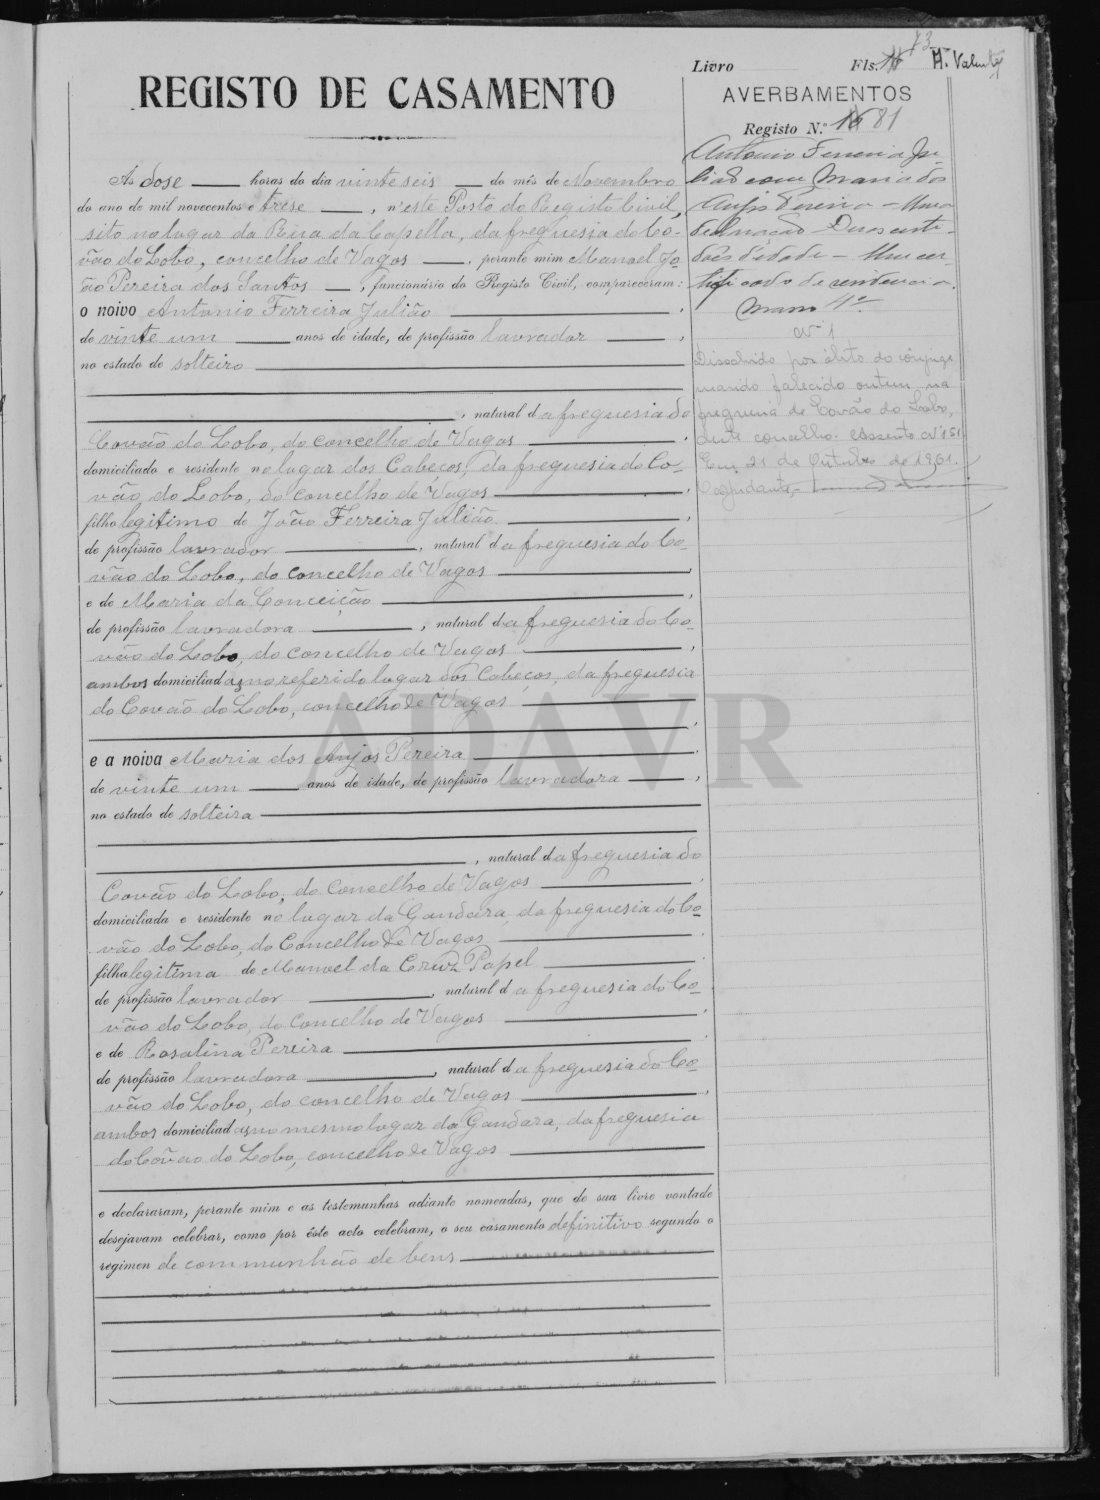 73
Livro Fls. 16 H. Valente
REGISTO DE CASAMENTO
AVERBAMENTOS
Registo N.º 16 81
Ás dose horas do dia vinte seis do mês de Novembro
do ano de mil novecentos e trese, n'este Posto do Registo Civil,
sito no lugar da Rua da Capella, da freguesia do Co-
vão do Lobo, concelho de Vagos, perante mim Manoel Jo-
ão Pereira dos Santos, funcionário do Registo Civil, compareceram:
o noivo Antonio Ferreira Julião,
de vinte um anos de idade, de profissão lavrador,
no estado de solteiro
, natural da freguesia do
Covão do Lobo, do concelho de Vagos,
domiciliado e residente no lugar dos Cabeços, da freguesia do Co-
vão do Lobo, do concelho de Vagos,
filho legitimo de João Ferreira Julião,
de profissão lavrador, natural da freguesia do Co-
vão do Lobo, do concelho de Vagos,
e de Maria da Conceição,
de profissão lavradora, natural da freguesia do Co-
vão do Lobo, do concelho de Vagos,
ambos domiciliados no referido lugar dos Cabeços, da freguesia
do Covão do Lobo, concelho de Vagos,
e a noiva Maria dos Anjos Pereira,
de vinte um anos de idade, de profissão lavradora,
no estado de solteira
, natural da freguesia do
Covão do Lobo, do concelho de Vagos,
domiciliada e residente no lugar da Gandara, da freguesia do Co-
vão do Lobo, do Concelho de Vagos,
filha legitima de Manoel da Cruz Papel,
de profissão lavrador, natural da freguesia do Co-
vão do Lobo, do Concelho de Vagos,
e de Rosalina Pereira
de profissão lavradora, natural da freguesia do Co-
vão do Lobo, do concelho de Vagos,
ambos domiciliados no mesmo lugar da Gandara, da freguesia
do Covão do Lobo, concelho de Vagos
e declararam, perante mim e as testemunhas adiante nomeadas, que de sua livre vontade
desejavam celebrar, como por êste acto celebram, o seu casamento definitivo segundo o
regimen de communhão de bens
Antonio Ferreira Ju-
lião com Maria dos
Anjos Pereira - Uma
declaração - Duas certi-
dões d'idade - Um cer-
tificado de residencia.
Maço 4º
Nº 1
Dissolvido por óbito do cônjuge
marido falecido ontem, na
freguesia de Covão do Lobo,
deste concelho. Assento Nº 151
Em 21 de Outubro de 1961.
O ajudante,
ADAVR